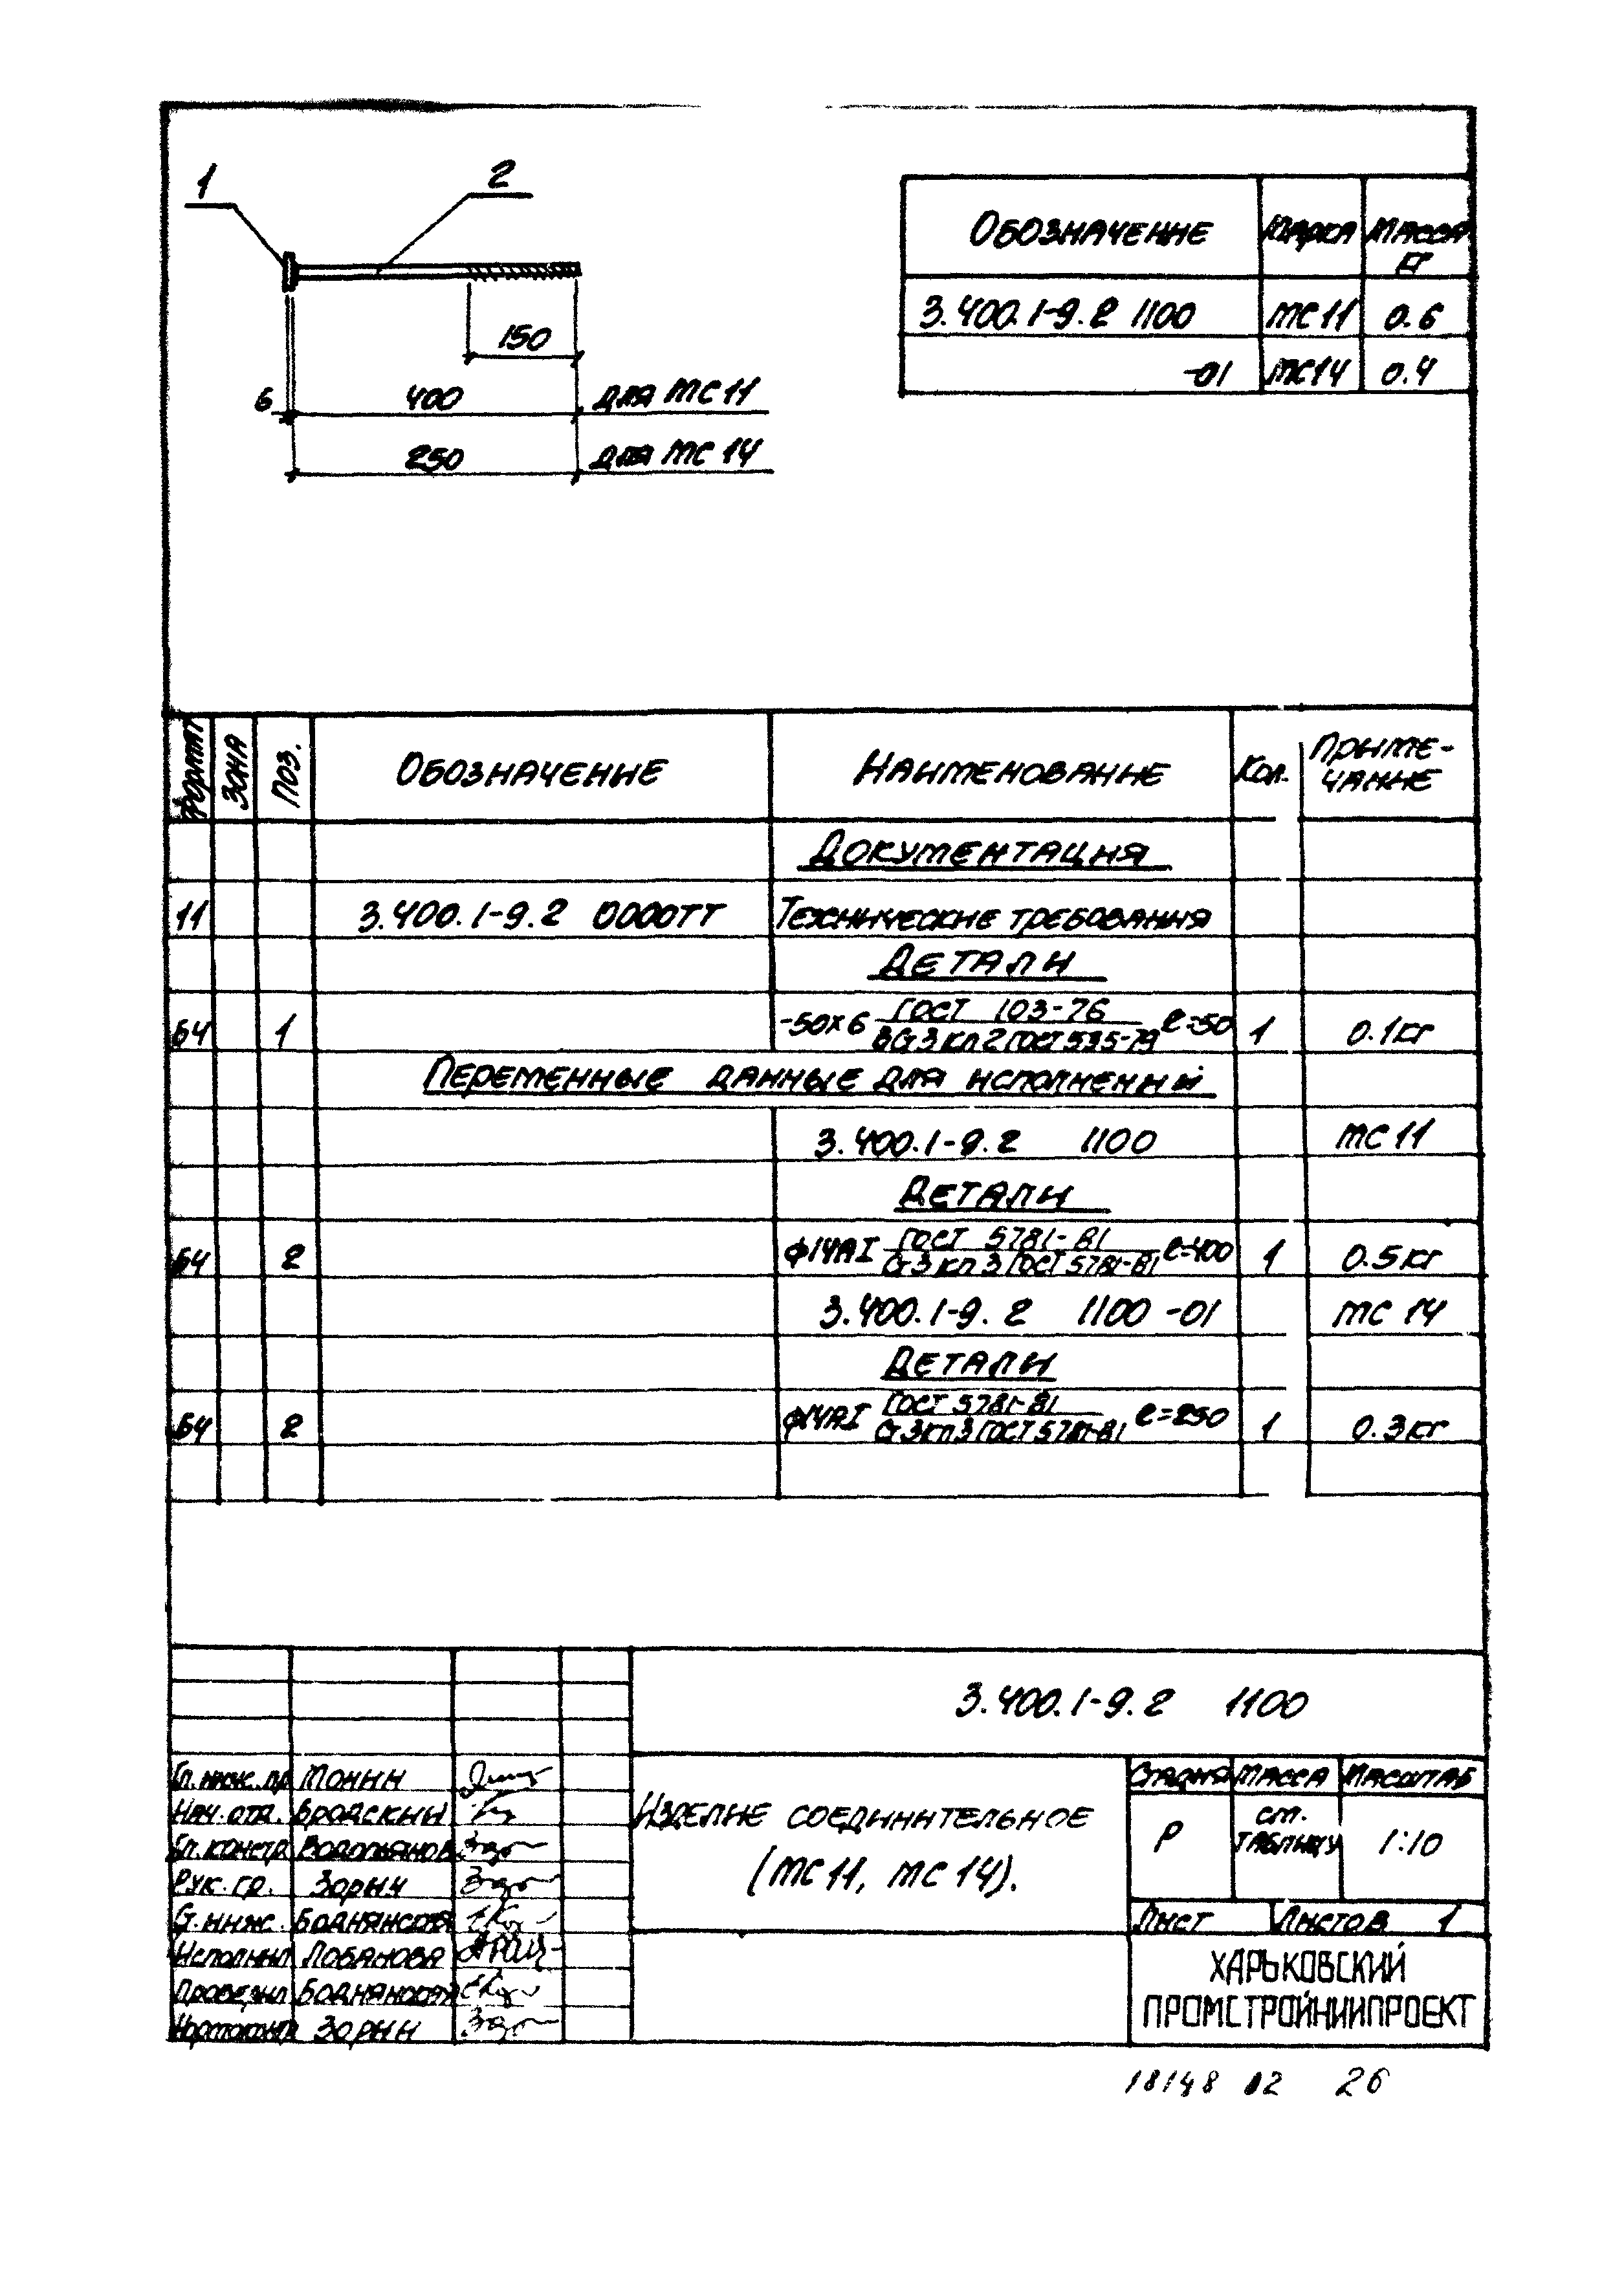 1
2
150
6
400
для МС 11
250
для МС 14
Обозначение Марка Масса кг
3.400.1-9.2 1100 МС 11 0.6
-01 МС 14 0.4
Формат Зона Поз. Обозначение Наименование Кол. Примечание
Документация
11 3.400.1-9.2 0000ТТ Технические требования
Детали
БЧ 1 -50х6 ГОСТ 103-76 / ВСт3кп2 ГОСТ 535-79 ℓ=50 1 0.1кг
Переменные данные для исполнений
3.400.1-9.2 1100 МС 11
Детали
БЧ 2 ф14АI ГОСТ 5781-81 / Ст3кп3 ГОСТ 5781-81 ℓ=400 1 0.5кг
3.400.1-9.2 1100-01 МС 14
Детали
БЧ 2 ф14АI ГОСТ 5781-81 / Ст3кп3 ГОСТ 5781-81 ℓ=250 1 0.3кг
3.400.1-9.2 1100
Гл. инж. пр Монин
Нач. отд. Бродский
Гл. констр Водопьянов
Рук. гр. Зорич
Ст. инж. Боднянская
Исполнил Лобанова
Проверил Боднянская
Зорин
Изделие соединительное
(МС 11, МС 14).
Стадия Масса Масштаб
Р см. таблицу 1:10
Лист Листов 1
ХАРЬКОВСКИЙ
ПРОМСТРОЙНИИПРОЕКТ
18148 02 26